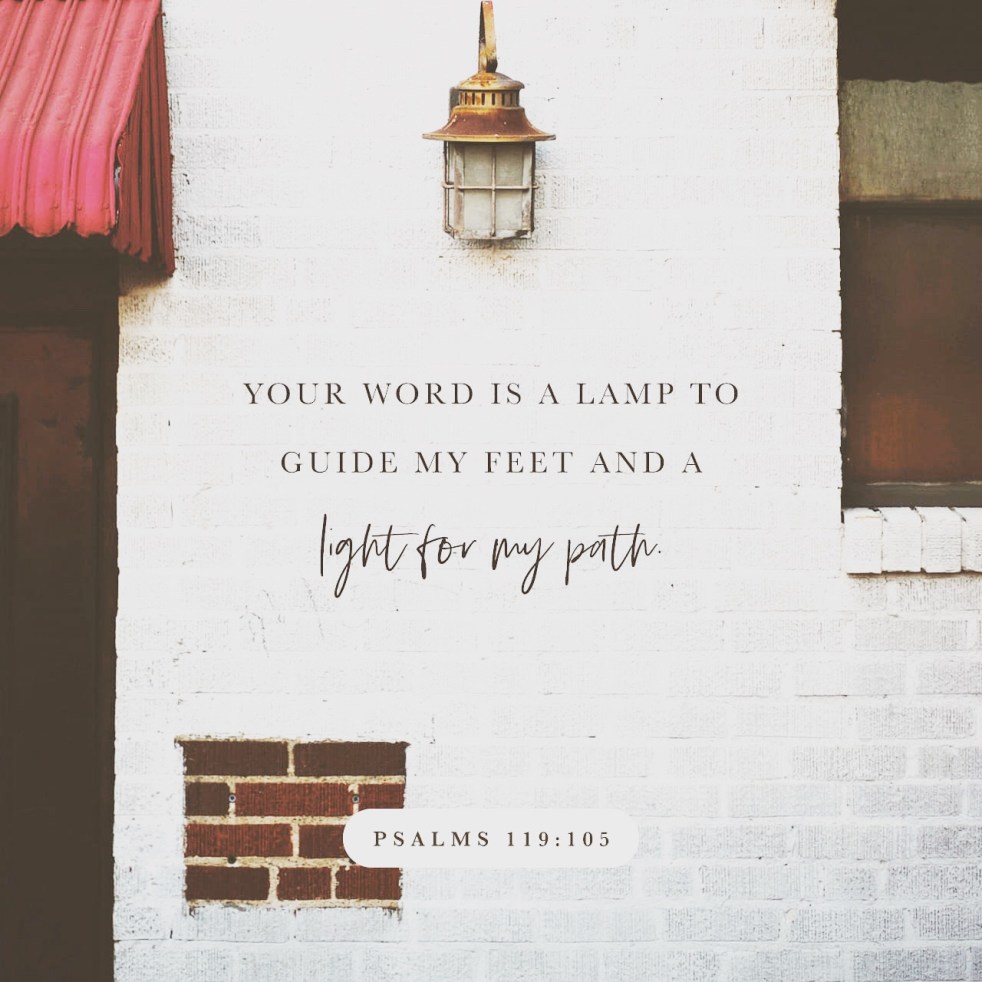 YOUR WORD IS A LAMP TO
GUIDE MY FEET AND A
light for my path.
PSALMS 119:105